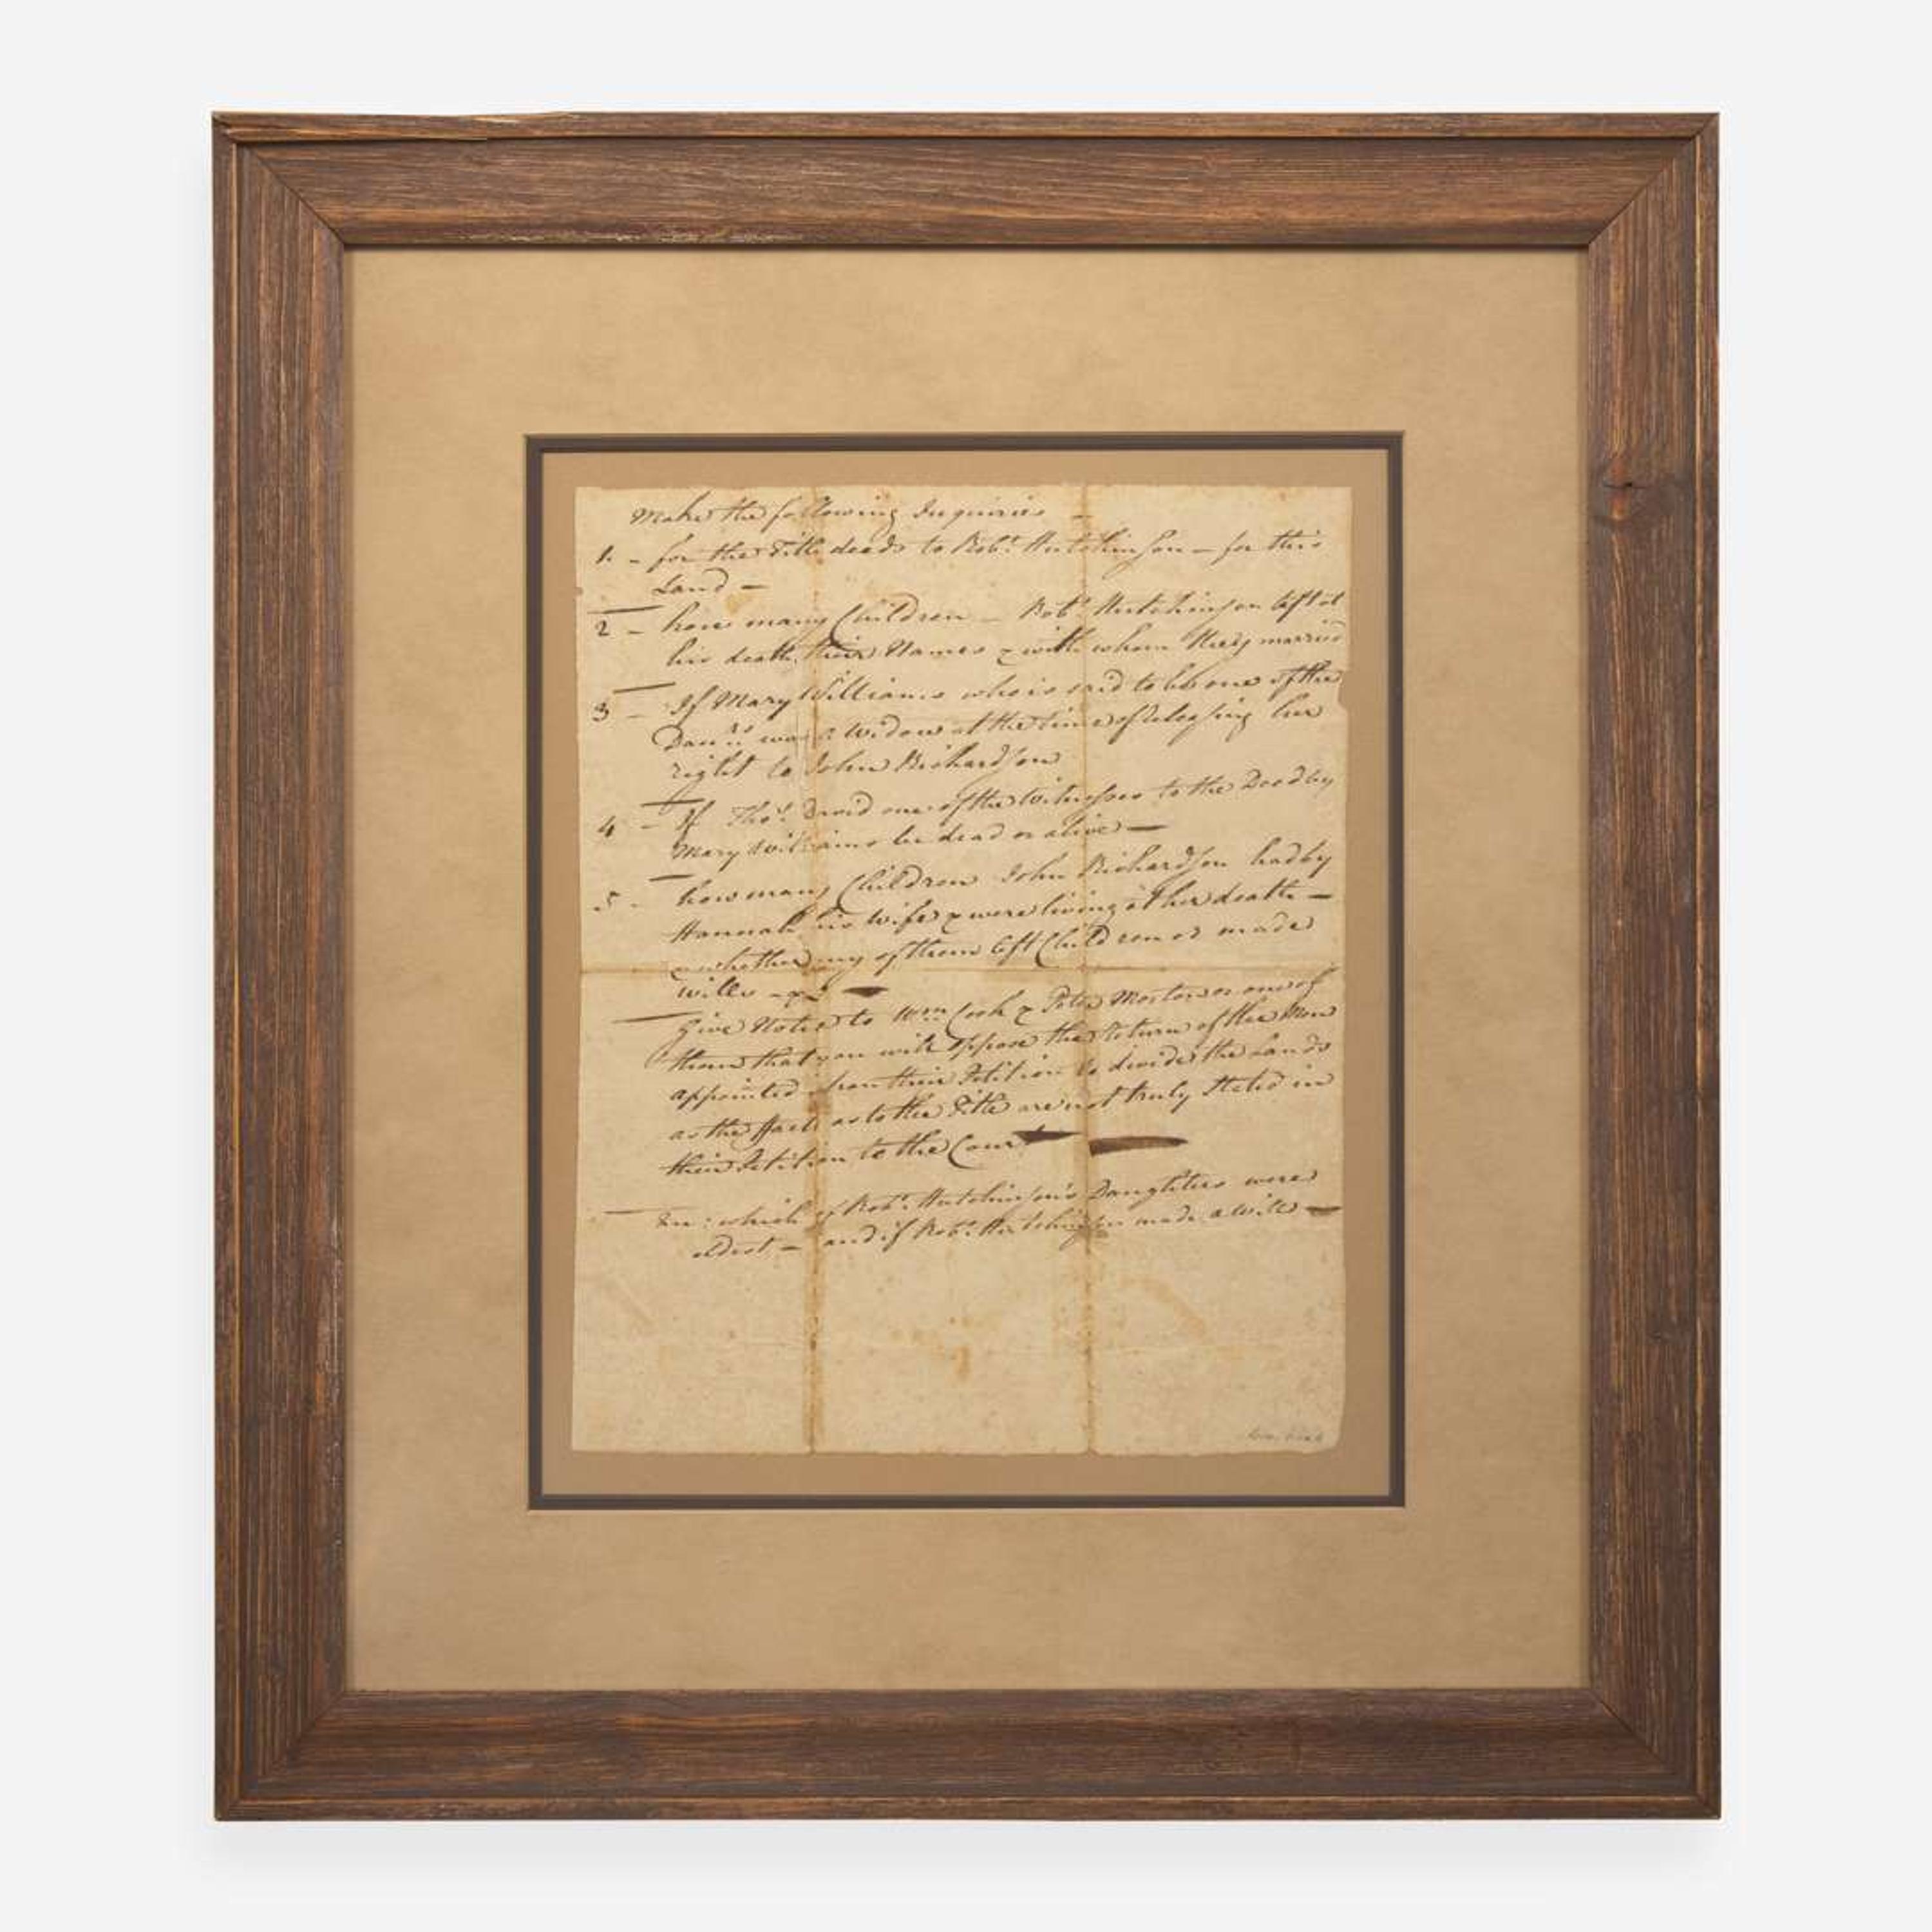 Make the following Inquiries —
1. – for the Title deeds to Robt. Hutchinson – for this
Land —
2 – how many Children – Robt. Hutchinson left at
his death, their Names & with whom they married
3 – If Mary Williams who is said to be one of the
Daurs. was a Widow at the time of releasing her
right to John Richardson
4 – If Thos. David one of the Witnesses to the Deed by
Mary Williams be dead or alive —
5 – how many Children John Richardson had by
Hannah his Wife & were living at her death —
& whether any of them left Children or made
wills – &c —
Give Notice to Wm Cook & Peter Morton or one of
them that you will oppose the Return of the Men
appointed upon their Petition to divide the Lands
as the Facts as to the Title are not truly Stated in
their Petition to the Court —
which of Robt. Hutchinson's Daughters were
oldest – and if Robt. Hutchinson made a will —